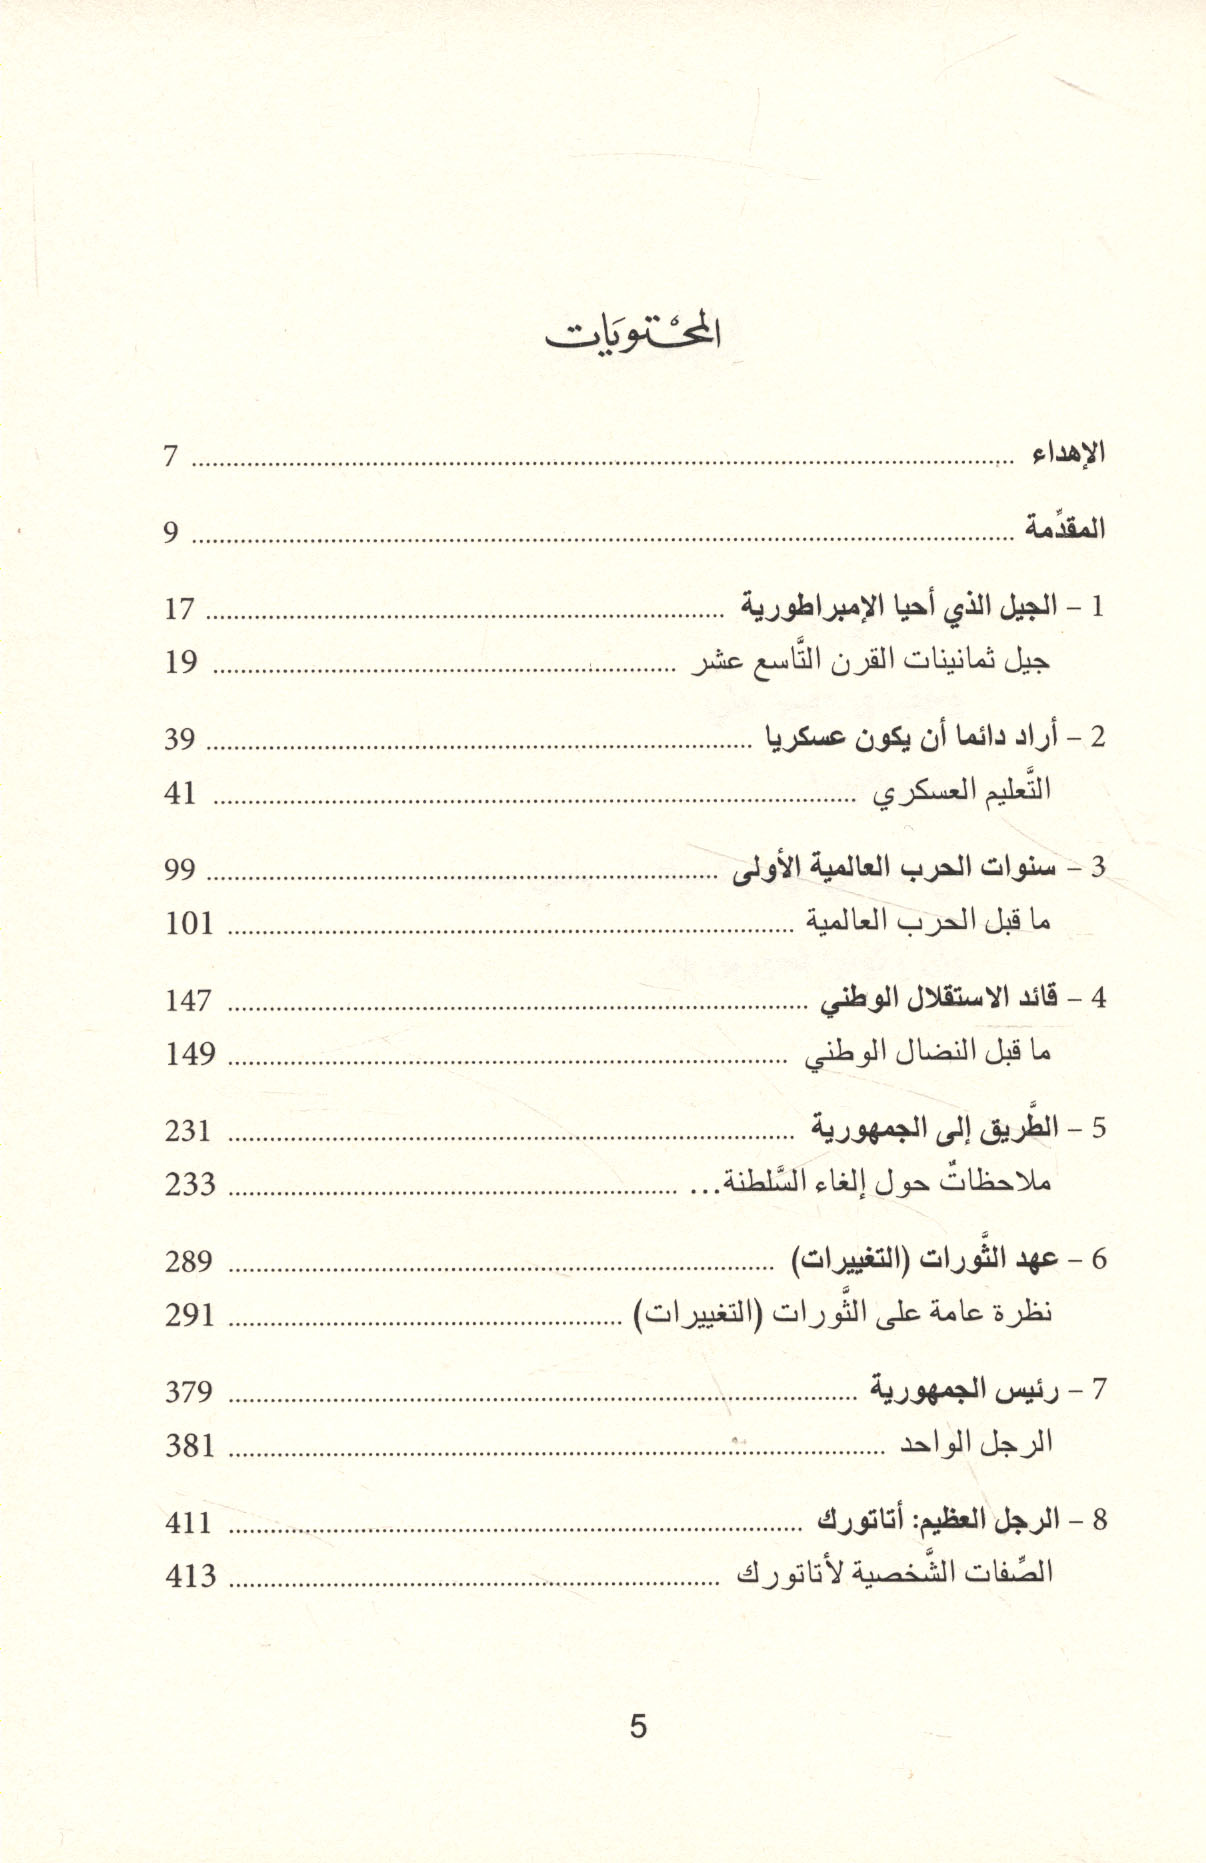 المحْتويَات
الإهداء ........................ 7
المقدِّمة ........................ 9
1 – الجيل الذي أحيا الإمبراطورية ........................ 17
جيل ثمانينات القرن التَّاسع عشر ........................ 19
2 – أراد دائما أن يكون عسكريا ........................ 39
التَّعليم العسكري ........................ 41
3 – سنوات الحرب العالمية الأولى ........................ 99
ما قبل الحرب العالمية ........................ 101
4 – قائد الاستقلال الوطني ........................ 147
ما قبل النضال الوطني ........................ 149
5 – الطَّريق إلى الجمهورية ........................ 231
ملاحظاتٌ حول إلغاء السَّلطنة... ........................ 233
6 – عهد الثَّورات (التغييرات) ........................ 289
نظرة عامة على الثَّورات (التغييرات) ........................ 291
7 – رئيس الجمهورية ........................ 379
الرجل الواحد ........................ 381
8 – الرجل العظيم: أتاتورك ........................ 411
الصِّفات الشَّخصية لأتاتورك ........................ 413
5